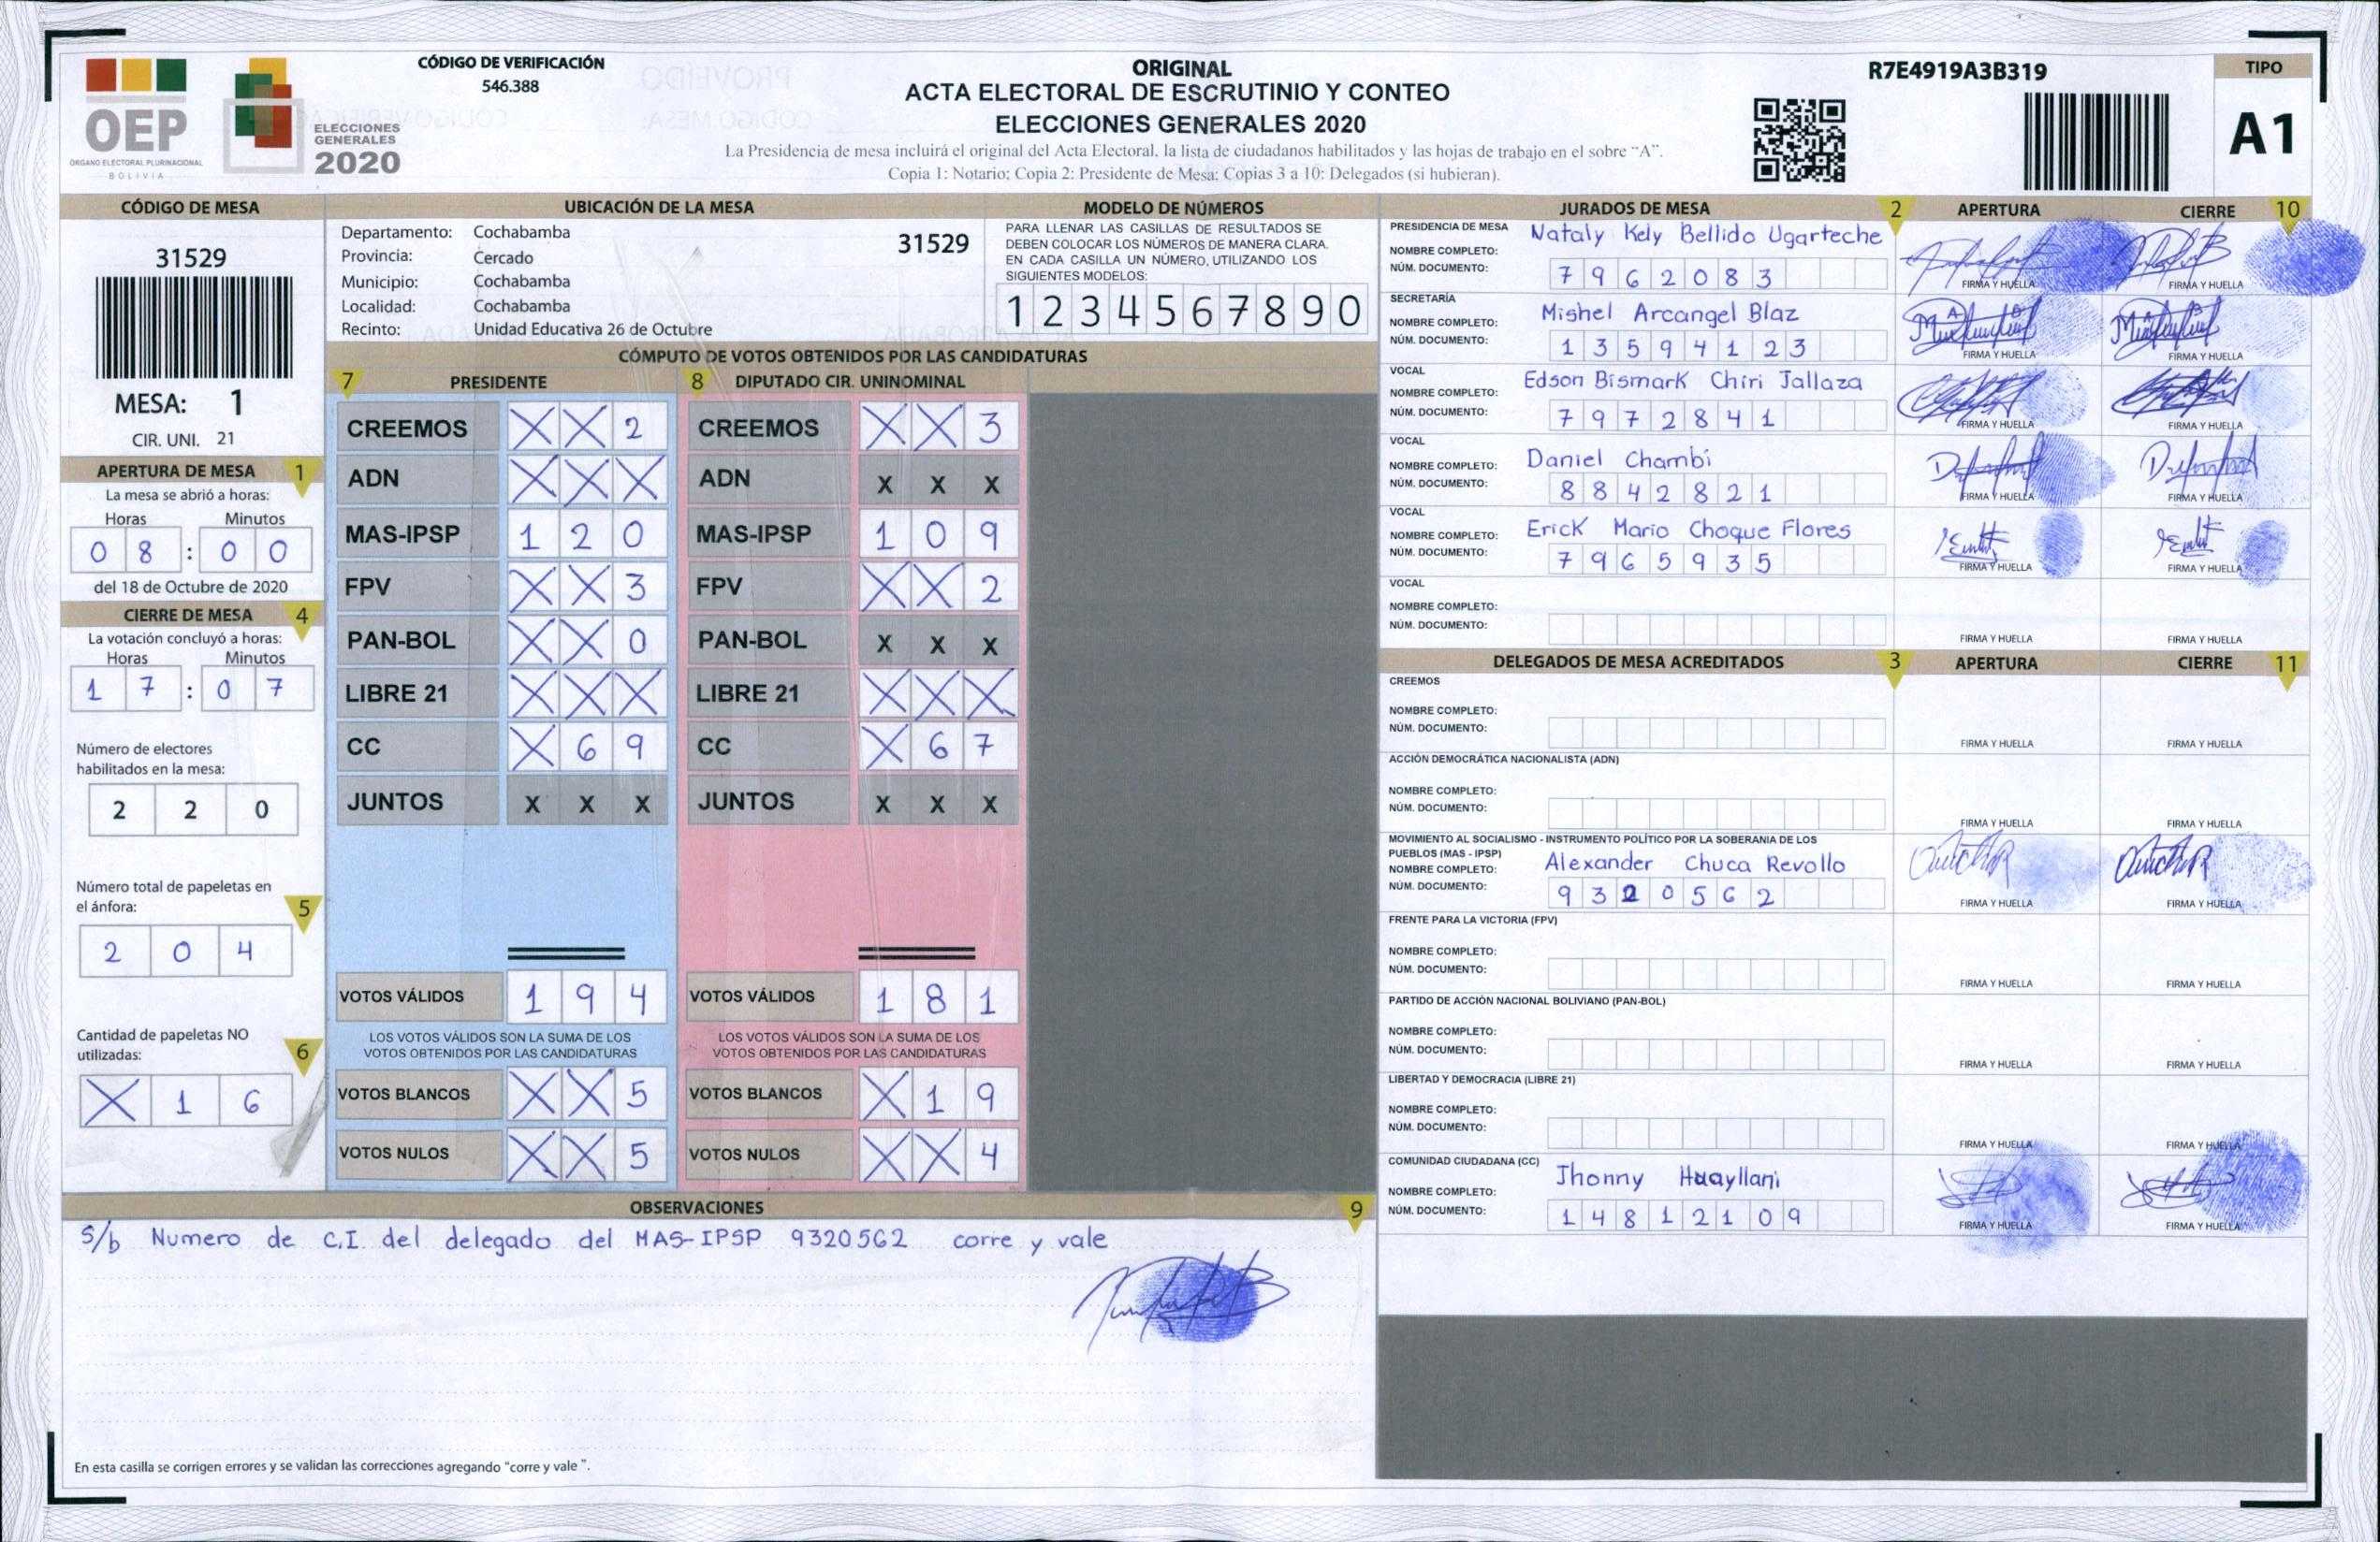 OEP
ÓRGANO ELECTORAL PLURINACIONAL
BOLIVIA
ELECCIONES
GENERALES
2020
CÓDIGO DE VERIFICACIÓN
546.388
ORIGINAL
ACTA ELECTORAL DE ESCRUTINIO Y CONTEO
ELECCIONES GENERALES 2020
La Presidencia de mesa incluirá el original del Acta Electoral, la lista de ciudadanos habilitados y las hojas de trabajo en el sobre “A”.
Copia 1: Notario; Copia 2: Presidente de Mesa; Copias 3 a 10: Delegados (si hubieran).
R7E4919A3B319
TIPO
A1
CÓDIGO DE MESA
31529
MESA: 1
CIR. UNI. 21
APERTURA DE MESA 1
La mesa se abrió a horas:
Horas Minutos
0 8 : 0 0
del 18 de Octubre de 2020
CIERRE DE MESA 4
La votación concluyó a horas:
Horas Minutos
1 7 : 0 7
Número de electores
habilitados en la mesa:
2 2 0
Número total de papeletas en
el ánfora: 5
2 0 4
Cantidad de papeletas NO
utilizadas: 6
X 1 6
UBICACIÓN DE LA MESA
Departamento: Cochabamba
31529
Provincia: Cercado
Municipio: Cochabamba
Localidad: Cochabamba
Recinto: Unidad Educativa 26 de Octubre
MODELO DE NÚMEROS
PARA LLENAR LAS CASILLAS DE RESULTADOS SE
DEBEN COLOCAR LOS NÚMEROS DE MANERA CLARA.
EN CADA CASILLA UN NÚMERO, UTILIZANDO LOS
SIGUIENTES MODELOS:
1 2 3 4 5 6 7 8 9 0
CÓMPUTO DE VOTOS OBTENIDOS POR LAS CANDIDATURAS
7 PRESIDENTE
CREEMOS X X 2
ADN X X X
MAS-IPSP 1 2 0
FPV X X 3
PAN-BOL X X 0
LIBRE 21 X X X
CC X 6 9
JUNTOS X X X
VOTOS VÁLIDOS 1 9 4
LOS VOTOS VÁLIDOS SON LA SUMA DE LOS
VOTOS OBTENIDOS POR LAS CANDIDATURAS
VOTOS BLANCOS X X 5
VOTOS NULOS X X 5
8 DIPUTADO CIR. UNINOMINAL
CREEMOS X X 3
ADN X X X
MAS-IPSP 1 0 9
FPV X X 2
PAN-BOL X X X
LIBRE 21 X X X
CC X 6 7
JUNTOS X X X
VOTOS VÁLIDOS 1 8 1
LOS VOTOS VÁLIDOS SON LA SUMA DE LOS
VOTOS OBTENIDOS POR LAS CANDIDATURAS
VOTOS BLANCOS X 1 9
VOTOS NULOS X X 4
OBSERVACIONES 9
S/b Numero de C.I. del delegado del MAS-IPSP 9320562 corre y vale
En esta casilla se corrigen errores y se validan las correcciones agregando “corre y vale ”.
JURADOS DE MESA 2 APERTURA CIERRE 10
PRESIDENCIA DE MESA
NOMBRE COMPLETO: Nataly Kely Bellido Ugarteche
NÚM. DOCUMENTO: 7 9 6 2 0 8 3
FIRMA Y HUELLA FIRMA Y HUELLA
SECRETARÍA
NOMBRE COMPLETO: Mishel Arcangel Blaz
NÚM. DOCUMENTO: 1 3 5 9 4 1 2 3
FIRMA Y HUELLA FIRMA Y HUELLA
VOCAL
NOMBRE COMPLETO: Edson Bismark Chiri Jallaza
NÚM. DOCUMENTO: 7 9 7 2 8 4 1
FIRMA Y HUELLA FIRMA Y HUELLA
VOCAL
NOMBRE COMPLETO: Daniel Chambi
NÚM. DOCUMENTO: 8 8 4 2 8 2 1
FIRMA Y HUELLA FIRMA Y HUELLA
VOCAL
NOMBRE COMPLETO: Erick Mario Choque Flores
NÚM. DOCUMENTO: 7 9 6 5 9 3 5
FIRMA Y HUELLA FIRMA Y HUELLA
VOCAL
NOMBRE COMPLETO:
NÚM. DOCUMENTO:
FIRMA Y HUELLA FIRMA Y HUELLA
DELEGADOS DE MESA ACREDITADOS 3 APERTURA CIERRE 11
CREEMOS
NOMBRE COMPLETO:
NÚM. DOCUMENTO:
FIRMA Y HUELLA FIRMA Y HUELLA
ACCIÓN DEMOCRÁTICA NACIONALISTA (ADN)
NOMBRE COMPLETO:
NÚM. DOCUMENTO:
FIRMA Y HUELLA FIRMA Y HUELLA
MOVIMIENTO AL SOCIALISMO - INSTRUMENTO POLÍTICO POR LA SOBERANIA DE LOS
PUEBLOS (MAS - IPSP)
NOMBRE COMPLETO: Alexander Chuca Revollo
NÚM. DOCUMENTO: 9 3 2 0 5 6 2
FIRMA Y HUELLA FIRMA Y HUELLA
FRENTE PARA LA VICTORIA (FPV)
NOMBRE COMPLETO:
NÚM. DOCUMENTO:
FIRMA Y HUELLA FIRMA Y HUELLA
PARTIDO DE ACCIÓN NACIONAL BOLIVIANO (PAN-BOL)
NOMBRE COMPLETO:
NÚM. DOCUMENTO:
FIRMA Y HUELLA FIRMA Y HUELLA
LIBERTAD Y DEMOCRACIA (LIBRE 21)
NOMBRE COMPLETO:
NÚM. DOCUMENTO:
FIRMA Y HUELLA FIRMA Y HUELLA
COMUNIDAD CIUDADANA (CC)
NOMBRE COMPLETO: Jhonny Huayllani
NÚM. DOCUMENTO: 1 4 8 1 2 1 0 9
FIRMA Y HUELLA FIRMA Y HUELLA